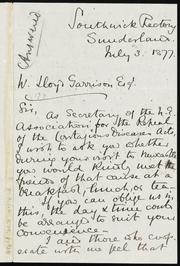 Answered
Southwick Rectory
Sunderland.
July 3. 1877.
W. Lloyd Garrison Esqr.
Sir,
As Secretary of the N.E.
Association for the Repeal
of the Contagious Diseases Acts,
I wish to ask you whether
during your visit to Newcastle
you would kindly meet the
friends of that cause at a
breakfast, lunch, or tea.
If you can oblige us in
this, the day & time could
be arranged to suit your
convenience.
I and those who coop-
erate with me feel that